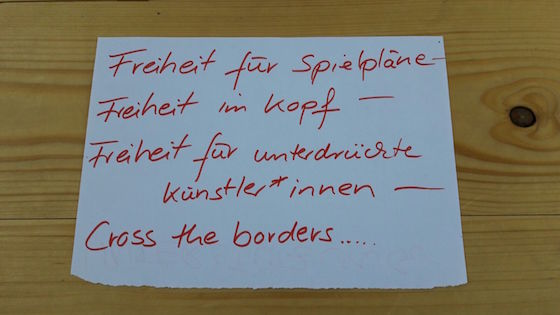 Freiheit für Spielpläne –
Freiheit im Kopf —
Freiheit für unterdrückte
Künstler*innen —
Cross the borders.....